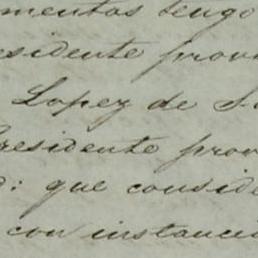 mentos tengo
esidente provi
Lopez de S
residente prov
d: que conside
con instancia